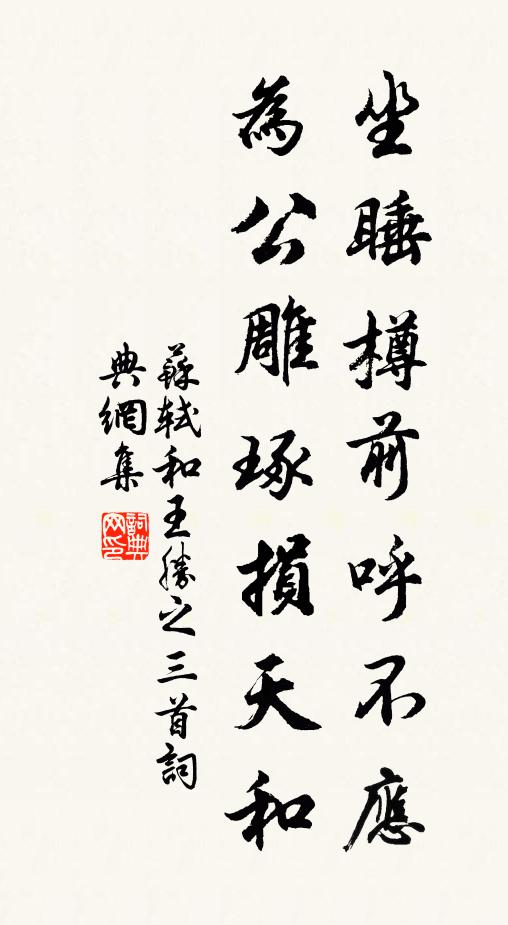 坐睡樽前呼不應
為公雕琢損天和
蘇軾和王勝之三首詞
典網集
詞典網印